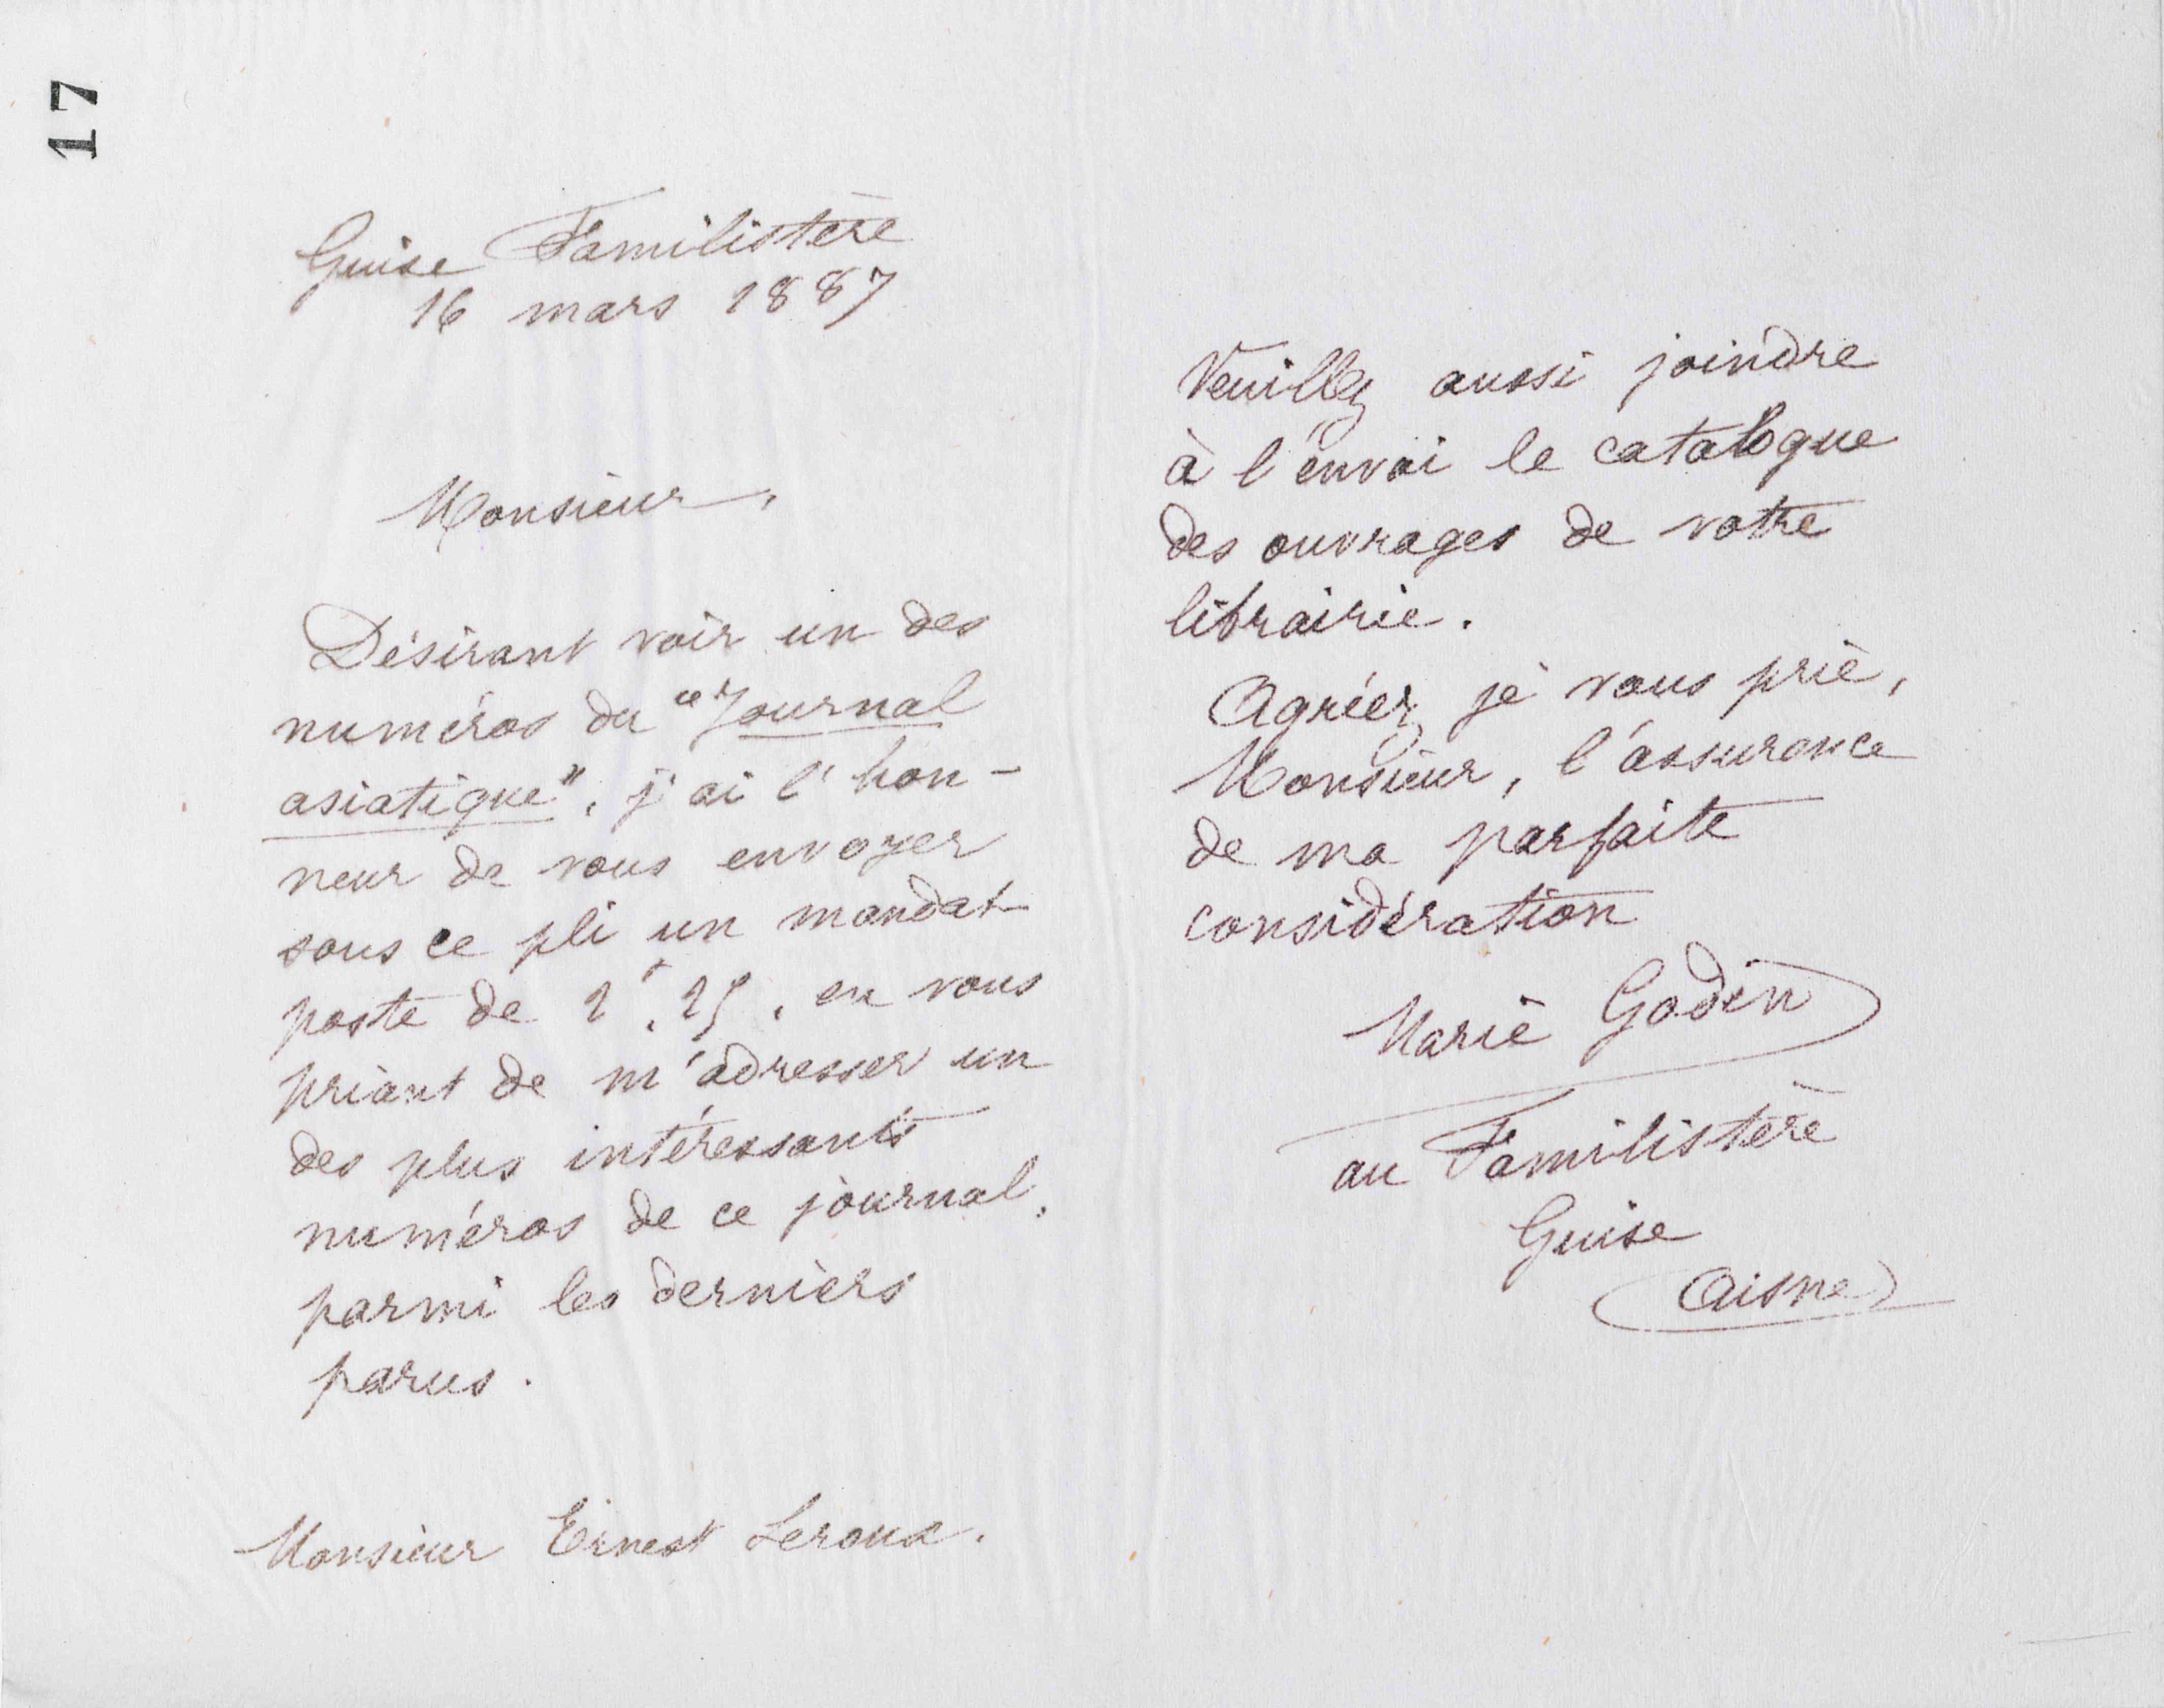 17
Guise Familistère
16 mars 1887
Monsieur,
Désirant voir un des
numéros du "Journal
asiatique", j'ai l'hon-
neur de vous envoyer
sous ce pli un mandat
poste de 2f,25, en vous
priant de m'adresser un
des plus intéressants
numéros de ce journal,
parmi les derniers
parus.
Monsieur Ernest Leroux.
Veuillez aussi joindre
à l'envoi le catalogue
des ouvrages de votre
librairie.
Agréez, je vous prie,
Monsieur, l'assurance
de ma parfaite
considération
Marie Godin
au Familistère
Guise
(Aisne)